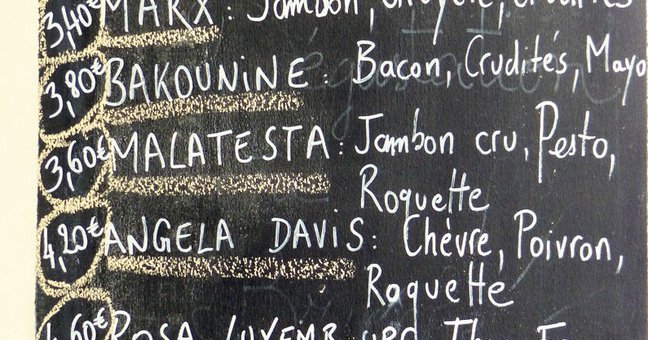 3,40€ MARX: Jambon, Gruyère, Crudités
3,80€ BAKOUNINE: Bacon, Crudités, Mayo
3,60€ MALATESTA: Jambon cru, Pesto,
Roquette
4,20€ ANGELA DAVIS: Chèvre, Poivron,
Roquette
4,60€ ROSA LUXEMBURG